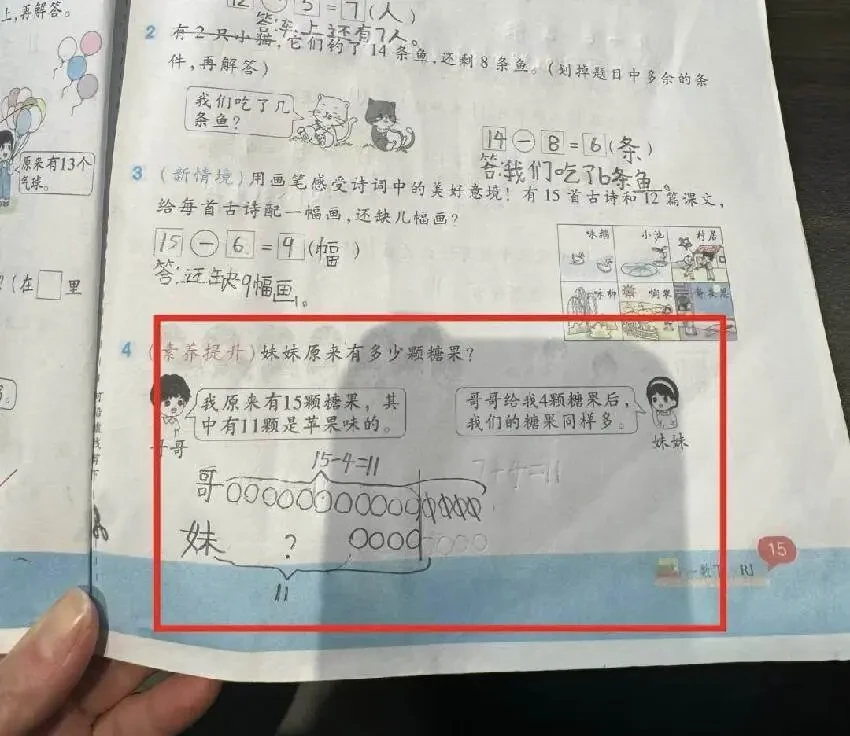 上,再解答。
5 = 7 (人)
答:车上还有7人。
2 有2只小猫,它们钓了14条鱼,还剩8条鱼。(划掉题目中多余的条
件,再解答)
我们吃了几
条鱼?
14 - 8 = 6 (条)
答:我们吃了6条鱼。
原来有13个
气球。
3 (新情境)用画笔感受诗词中的美好意境!有15首古诗和12篇课文,
给每首古诗配一幅画,还缺几幅画?
15 - 6 = 9 (幅)
答:还缺9幅画。
咏鹅 小池 村居
咏柳
?(在 里
4 (素养提升)妹妹原来有多少颗糖果?
我原来有15颗糖果,其
中有11颗是苹果味的。
哥哥给我4颗糖果后,
我们的糖果同样多。
哥哥
妹妹
15-4=11
7+4=11
哥
妹 ?
11
15
一数下 RJ